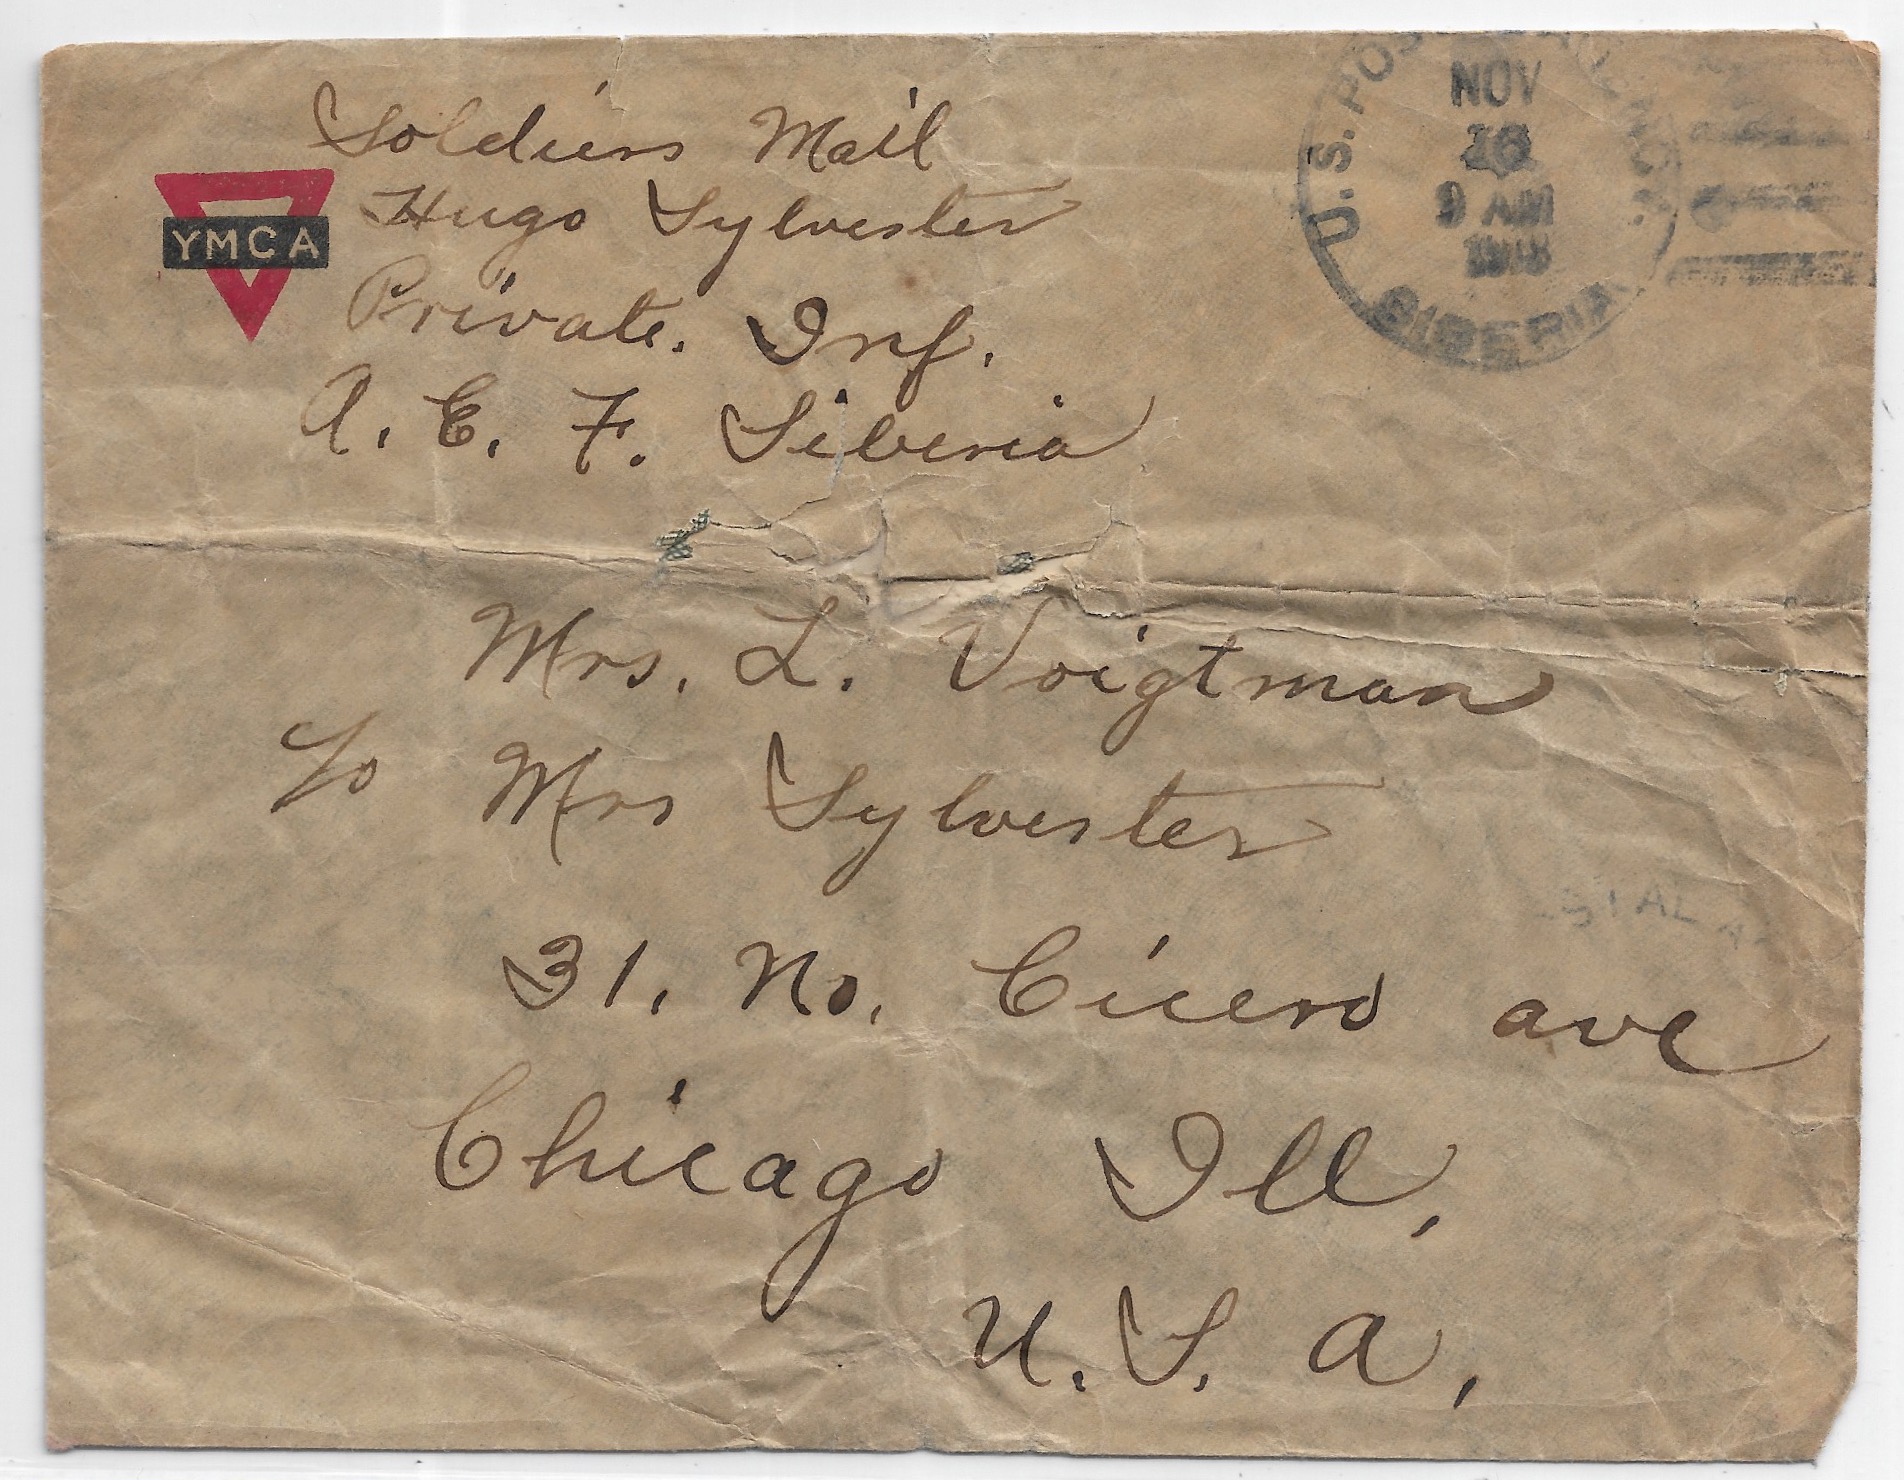 Soldiers Mail
YMCA
Hugo Sylvester
Private. Inf.
A. E. F. Siberia
U.S. POSTAL AGENCY
NOV
9 AM
1918
SIBERIA
Mrs. L. Voigtman
To Mrs Sylvester
31. No. Cicero ave
Chicago Ill.
U. S. A.